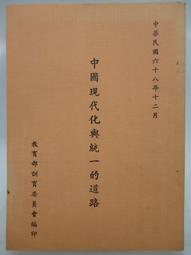 中華民國六十八年十二月
中國現代化與統一的道路
教育部訓育委員會編印